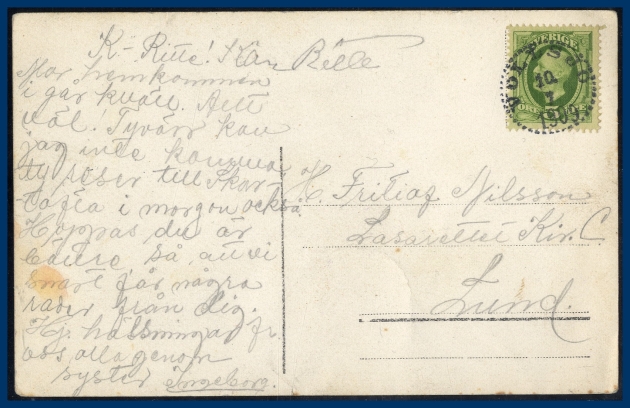 K-Ritte! Kär
Mor hemkommen
i går kväll. Allt
väl! Tyvärr kan
jag inte komma,
ty reser till Skar-
i morgon också.
Hoppas du är
bättre så att vi
snart får några
rader från dig.
Hj. hälsningar fr.
oss alla genom
syster Ingeborg.
SVERIGE
SÖD
10
7
1909
ÖRE
H. Fritiof Nilsson
Lasarettet Kir. C.
Lund.